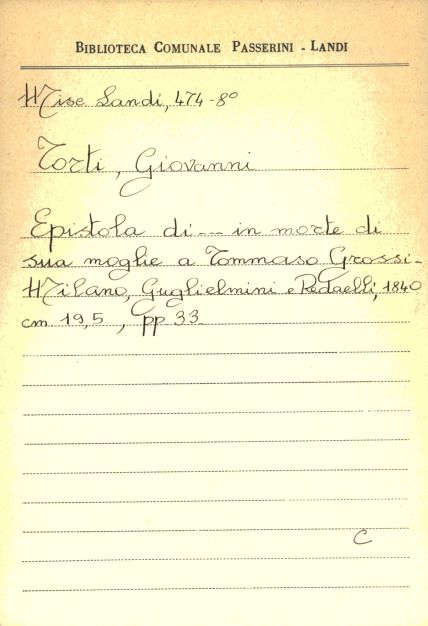 BIBLIOTECA COMUNALE PASSERINI - LANDI
Misc Landi, 474 - 8°
Torti, Giovanni
Epistola di -- in morte di
sua moglie a Tommaso Grossi -
Milano, Guglielmini e Redaelli, 1840
cm. 19,5, pp 33
C